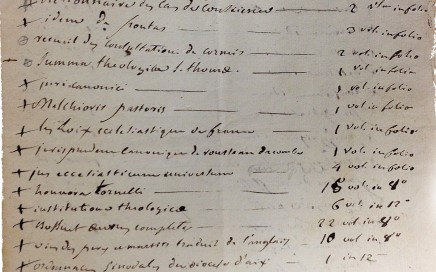 dictionnaire des cas de conscience 2 vol in folio
+ idem de pontas 3 vol in folio
recueil des consultation de cormis 2 vol in folio
Summa theologica S. thomæ 1 vol in folio
+ juris canonici 1 vol. in folio
+ Melchioris pastoris 1 vol in folio
+ les loix ecclesiastique de france 1 vol in folio
+ jurisprudence canonique de rousseau de lacombe 1 vol. in folio
+ jus ecclesiasticum universum 4 vol in folio
+ honorati tornelli vol. in 8°
+ institutiones theologicæ 6 vol in 12
+ Bossuet œuvres completes 22 vol in 8°
+ vies des peres traduit de l'anglais 10 vol in 8°
+ ordonnances sinodales du diocese d'aix 1 in 12